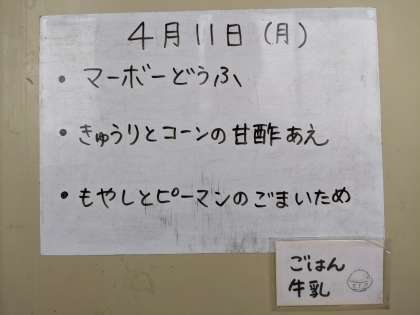 4月11日(月)
・マーボーどうふ
・きゅうりとコーンの甘酢あえ
・もやしとピーマンのごまいため
ごはん
牛乳